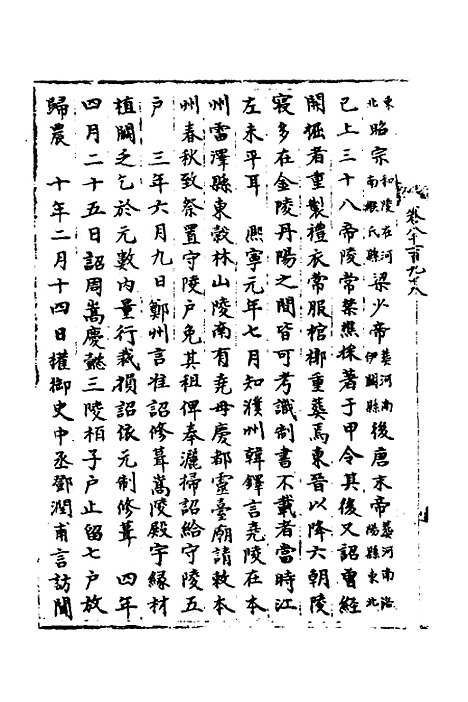 東北昭宗和陵在河南緱氏縣梁少帝葬河南伊闕縣後唐末帝葬河南洛陽縣東北
已上三十八帝陵常禁樵採著于甲令其後又詔曾經
開掘者重製禮衣常服棺槨重葬焉東晉以降六朝陵
寢多在金陵丹陽之間皆可考識制書不載者當時江
左未平耳　熙寧元年七月知濮州韓鐸言堯陵在本
州雷澤縣東穀林山陵南有堯母慶都靈臺廟請敕本
州春秋致祭置守陵戶免其租俾奉灑掃詔給守陵五
戶　三年六月九日鄭州言准詔修葺嵩陵殿宇緣材
植闕乏乞於元數內量行裁損詔依元制修葺　四年
四月二十五日詔周嵩慶懿三陵栢子戶止留七戶放
歸農　十年二月十四日權御史中丞鄧潤甫言訪聞